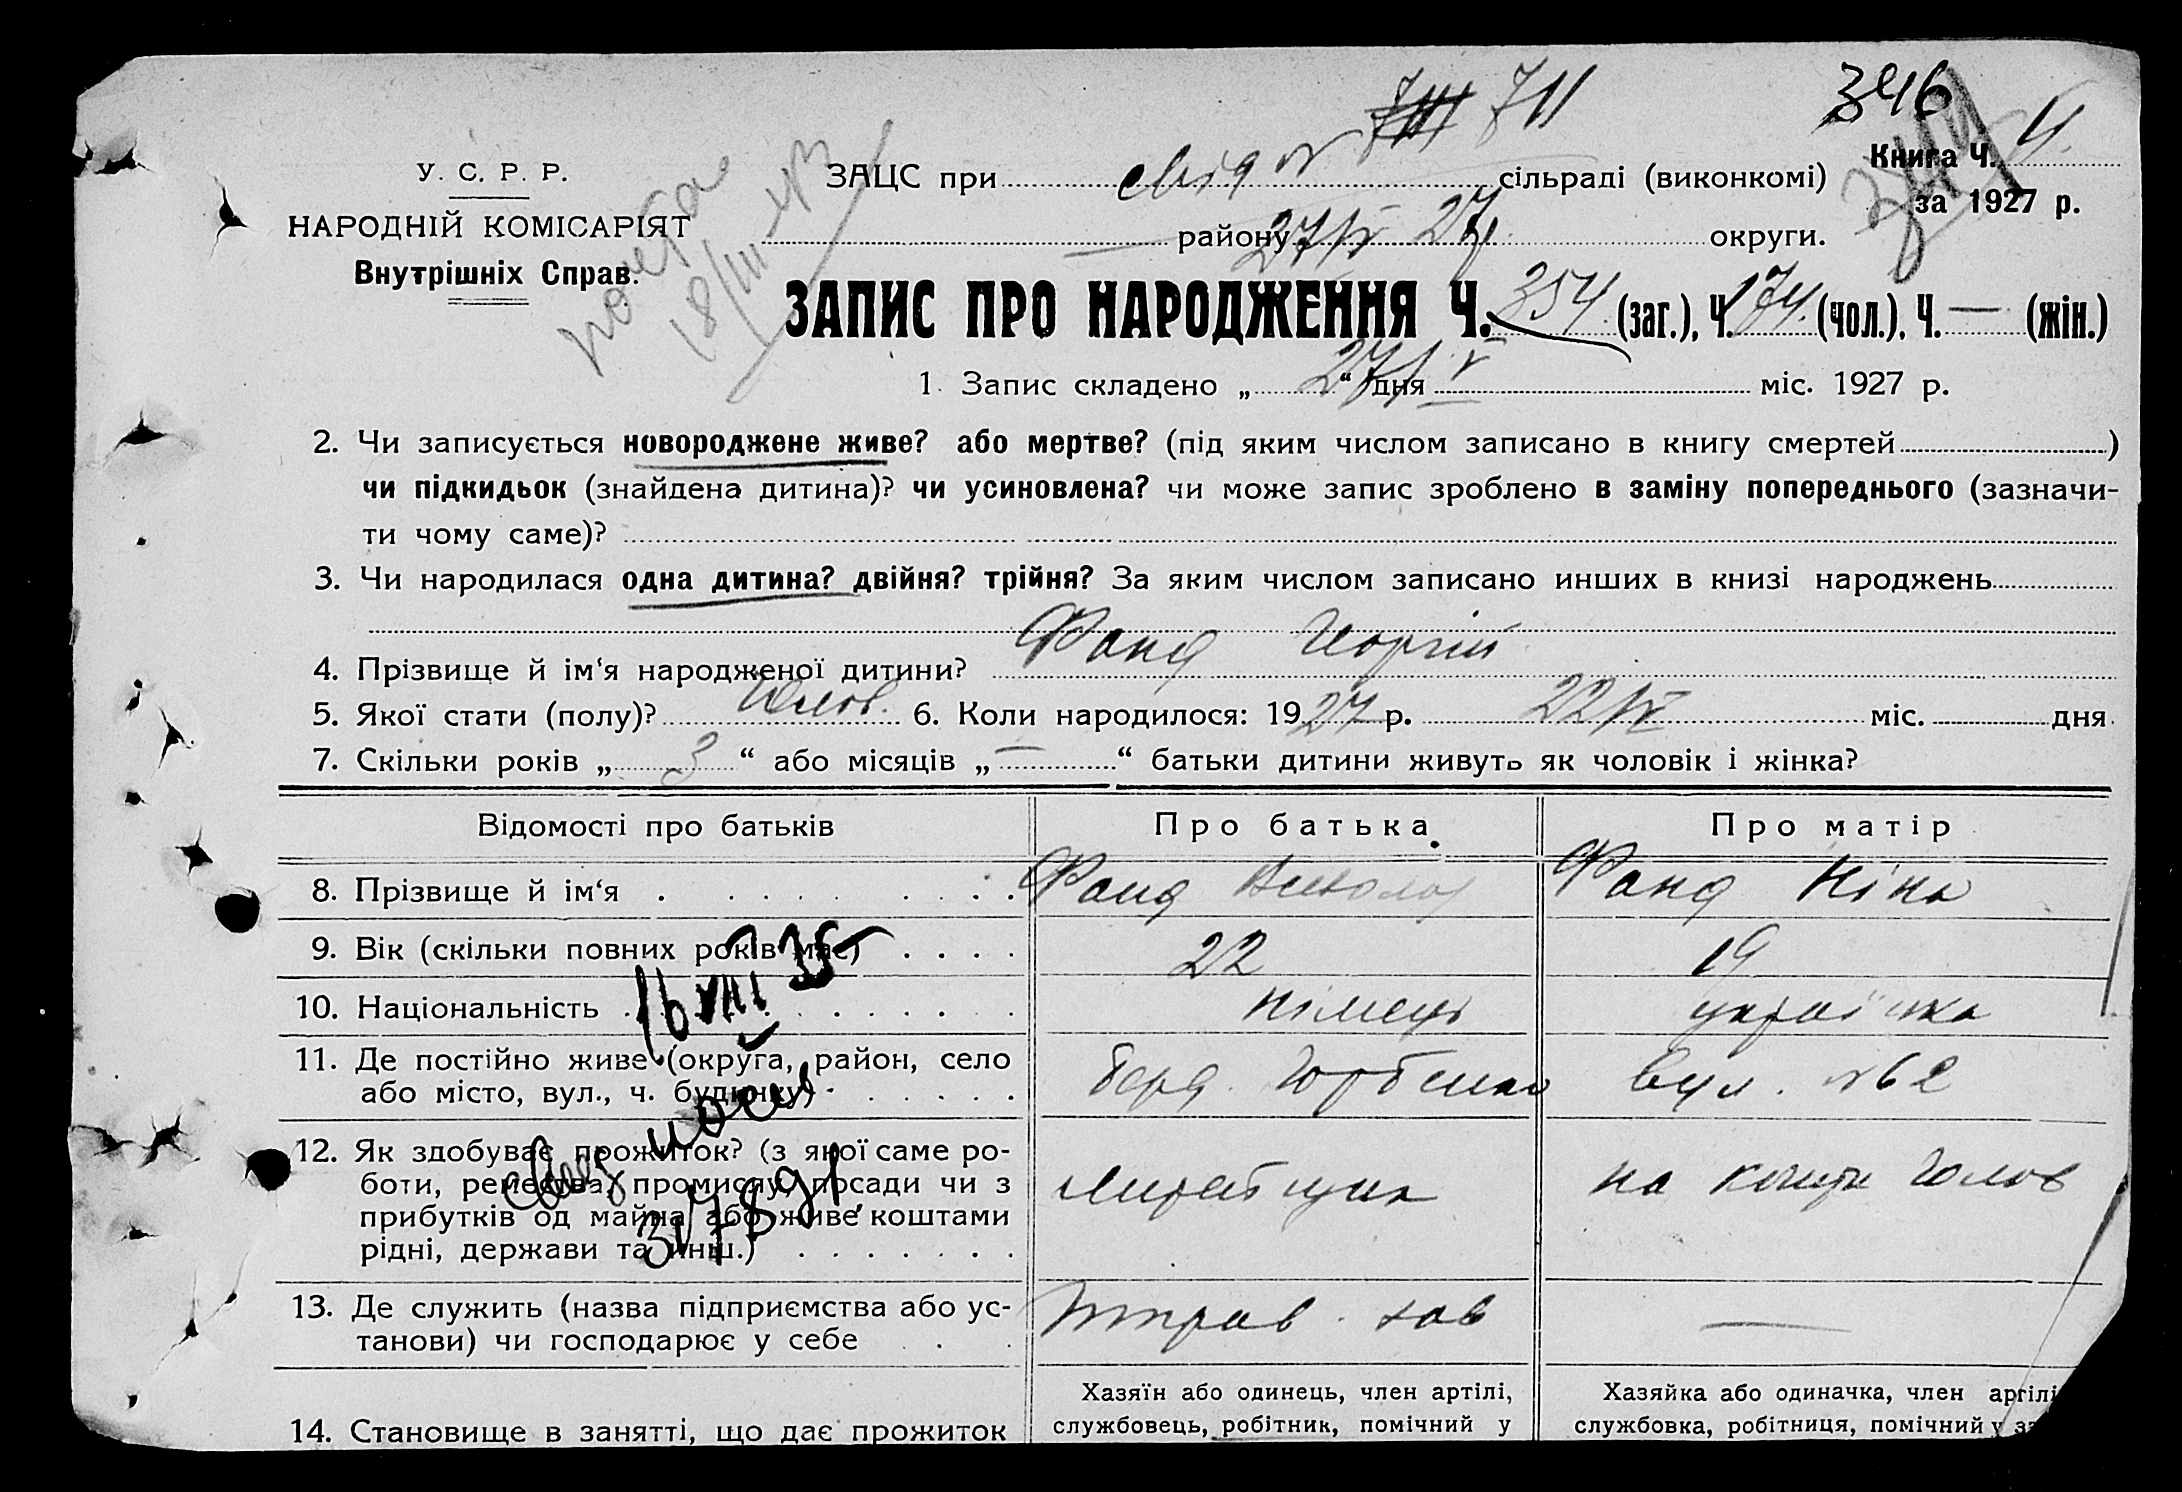 346
У. С. Р. Р.
НАРОДНІЙ КОМІСАРІЯТ
Внутрішніх Справ.
ЗАЦС при сільраді (виконкомі)
Книга Ч. 4.
за 1927 р.
району округи.
ЗАПИС ПРО НАРОДЖЕННЯ Ч. 354. (заг.), Ч. 174. (чол.), Ч. — (жін.)
1. Запис складено „ 27/IV “ дня міс. 1927 р.
2. Чи записується новороджене живе? або мертве? (під яким числом записано в книгу смертей )
чи підкидьок (знайдена дитина)? чи усиновлена? чи може запис зроблено в заміну попереднього (зазначи-
ти чому саме)?
3. Чи народилася одна дитина? двійня? трійня? За яким числом записано инших в книзі народжень
4. Прізвище й ім‘я народженої дитини? Фанд Георгій
5. Якої стати (полу)? Чолов. 6. Коли народилося: 1927 р. 22/IV міс. дня
7. Скільки років „ 3 “ або місяців „ — “ батьки дитини живуть як чоловік і жінка?
Відомості про батьків Про батька Про матір
8. Прізвище й ім‘я Фанд Фанд Ніна
9. Вік (скільки повних років має) 22 19
10. Національність німець українка
16 VIII 35
11. Де постійно живе (округа, район, село
або місто, вул., ч. будинку) Горбенко вул. №62
12. Як здобуває прожиток? (з якої саме ро-
боти, ремества, промислу, посади чи з
прибутків од майна або живе коштами
рідні, держави та инш.) на кошти чолов
13. Де служить (назва підприємства або ус-
танови) чи господарює у себе —
14. Становище в занятті, що дає прожиток
Хазяїн або одинець, член артілі,
службовець, робітник, помічний у
Хазяйка або одиначка, член артілі
службовка, робітниця, помічний у за